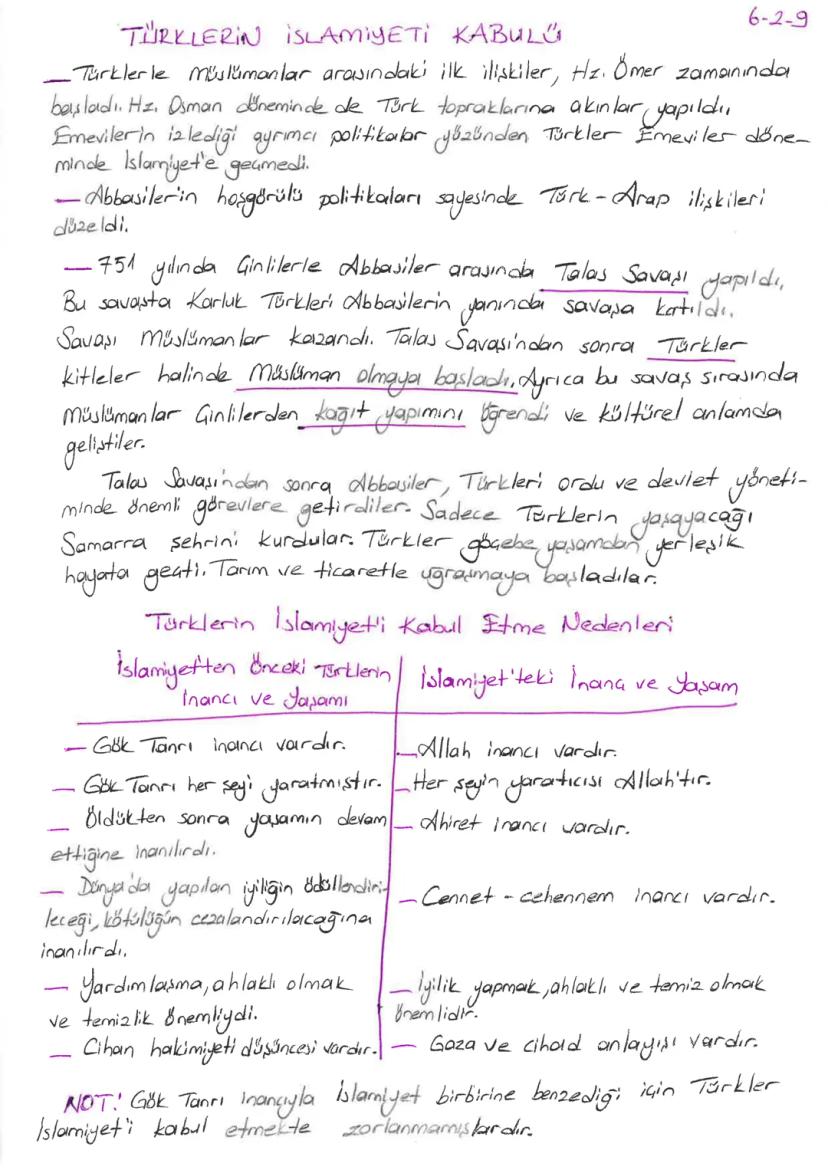 6-2-9
TÜRKLERİN İSLAMİYETİ KABULÜ
— Türklerle Müslümanlar arasındaki ilk ilişkiler, Hz. Ömer zamanında
başladı. Hz. Osman döneminde de Türk topraklarına akınlar yapıldı,
Emevilerin izlediği ayrımcı politikalar yüzünden Türkler Emeviler döne-
minde İslamiyet'e geçmedi.
— Abbasiler'in hoşgörülü politikaları sayesinde Türk-Arap ilişkileri
düzeldi.
— 751 yılında Çinlilerle Abbasiler arasında Talas Savaşı yapıldı,
Bu savaşta Karluk Türkleri Abbasilerin yanında savaşa katıldı.
Savaşı Müslümanlar kazandı. Talas Savaşı'ndan sonra Türkler
kitleler halinde Müslüman olmaya başladı. Ayrıca bu savaş sırasında
Müslümanlar Çinlilerden kağıt yapımını öğrendi ve kültürel anlamda
geliştiler.
Talas Savaşı'ndan sonra Abbasiler, Türkleri ordu ve devlet yöneti-
minde önemli görevlere getirdiler. Sadece Türklerin yaşayacağı
Samarra şehrini kurdular. Türkler göçebe yaşamdan yerleşik
hayata geçti. Tarım ve ticaretle uğraşmaya başladılar.
Türklerin İslamiyet'i Kabul Etme Nedenleri
İslamiyet'ten Önceki Türklerin
İnancı ve Yaşamı
— Gök Tanrı inancı vardır.
— Gök Tanrı her şeyi yaratmıştır.
— Öldükten sonra yaşamın devam
ettiğine inanılırdı.
— Dünya'da yapılan iyiliğin ödüllendiri-
leceği, kötülüğün cezalandırılacağına
inanılırdı.
— Yardımlaşma, ahlaklı olmak
ve temizlik önemliydi.
— Cihan hakimiyeti düşüncesi vardır.
İslamiyet'teki İnanç ve Yaşam
— Allah inancı vardır.
— Her şeyin yaratıcısı Allah'tır.
— Ahiret inancı vardır.
— Cennet - cehennem inancı vardır.
— İyilik yapmak, ahlaklı ve temiz olmak
önemlidir.
— Gaza ve cihad anlayışı vardır.
NOT! Gök Tanrı inancıyla İslamiyet birbirine benzediği için Türkler
İslamiyet'i kabul etmekte zorlanmamışlardır.